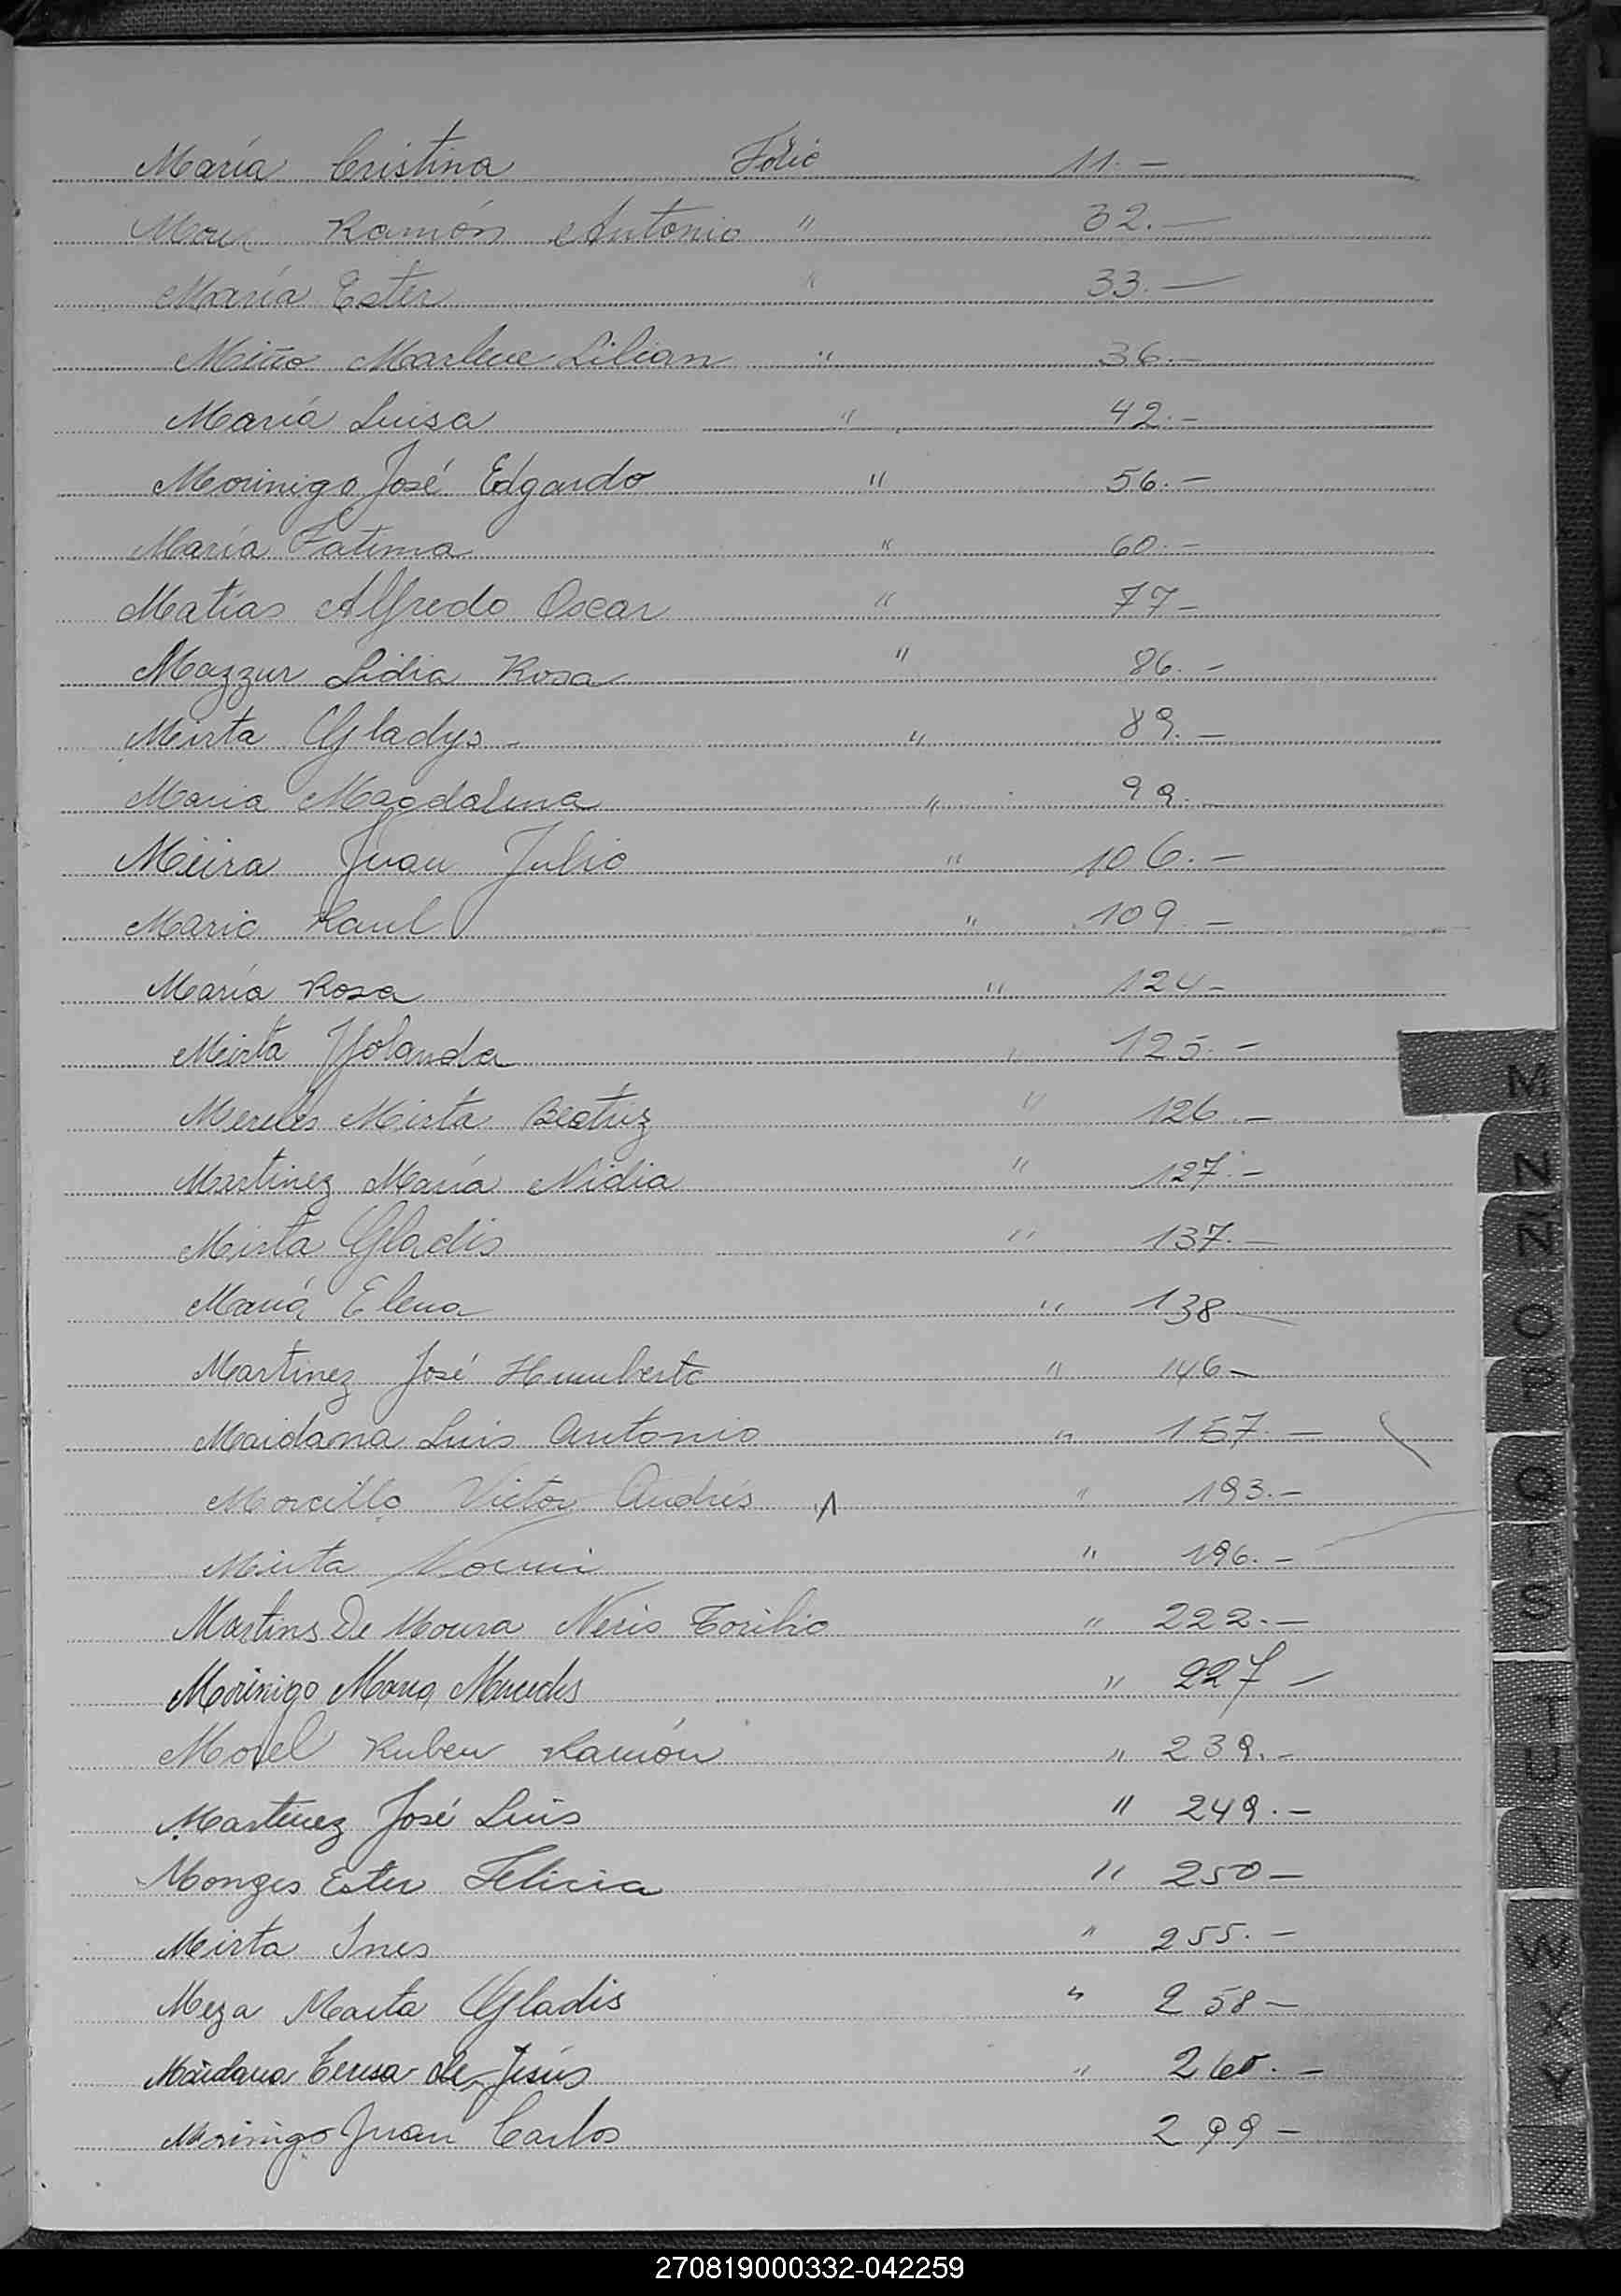 María Cristina Folio 11.-
Ramón Antonio " 32.-
María Ester " 33.-
Miño Marlene Lilian " 36.-
María Luisa " 42.-
Morinigo José Edgardo " 56.-
María Fatima " 60.-
Matías Alfredo Oscar " 77-
Mazzur Lidia Rosa " 86.-
Mirta Gladys - " 89.-
Maria Magdalena " 99.-
Mieira Juan Julio " 106.-
Mario Raul " 109.-
María Rosa " 124-
Mirta Yolanda " 125.-
Mereles Mirta Beatriz " 126.-
Martinez María Nidia " 127.-
Mirta Gladis " 137.-
María Elena " 138
Martinez José Humberto " 146-
Maidana Luis Antonio " 157.-
Morcillo Victor Andrés " 193.-
Mirta Noemi " 196.-
Martins De Moura Neris Toribio " 222.-
Morinigo Maria Mercedes " 227-
Morel Ruben Ramón " 239.-
Martinez José Luis " 249.-
Monges Ester Felicia " 250-
Mirta Ines " 255.-
Meza Marta Gladis " 258-
Maidana Teresa de Jesús " 260.-
Morinigo Juan Carlos 299-
M
N
Ñ
O
P
Q
R
S
T
U
V
W
X
Y
Z
270819000332-042259